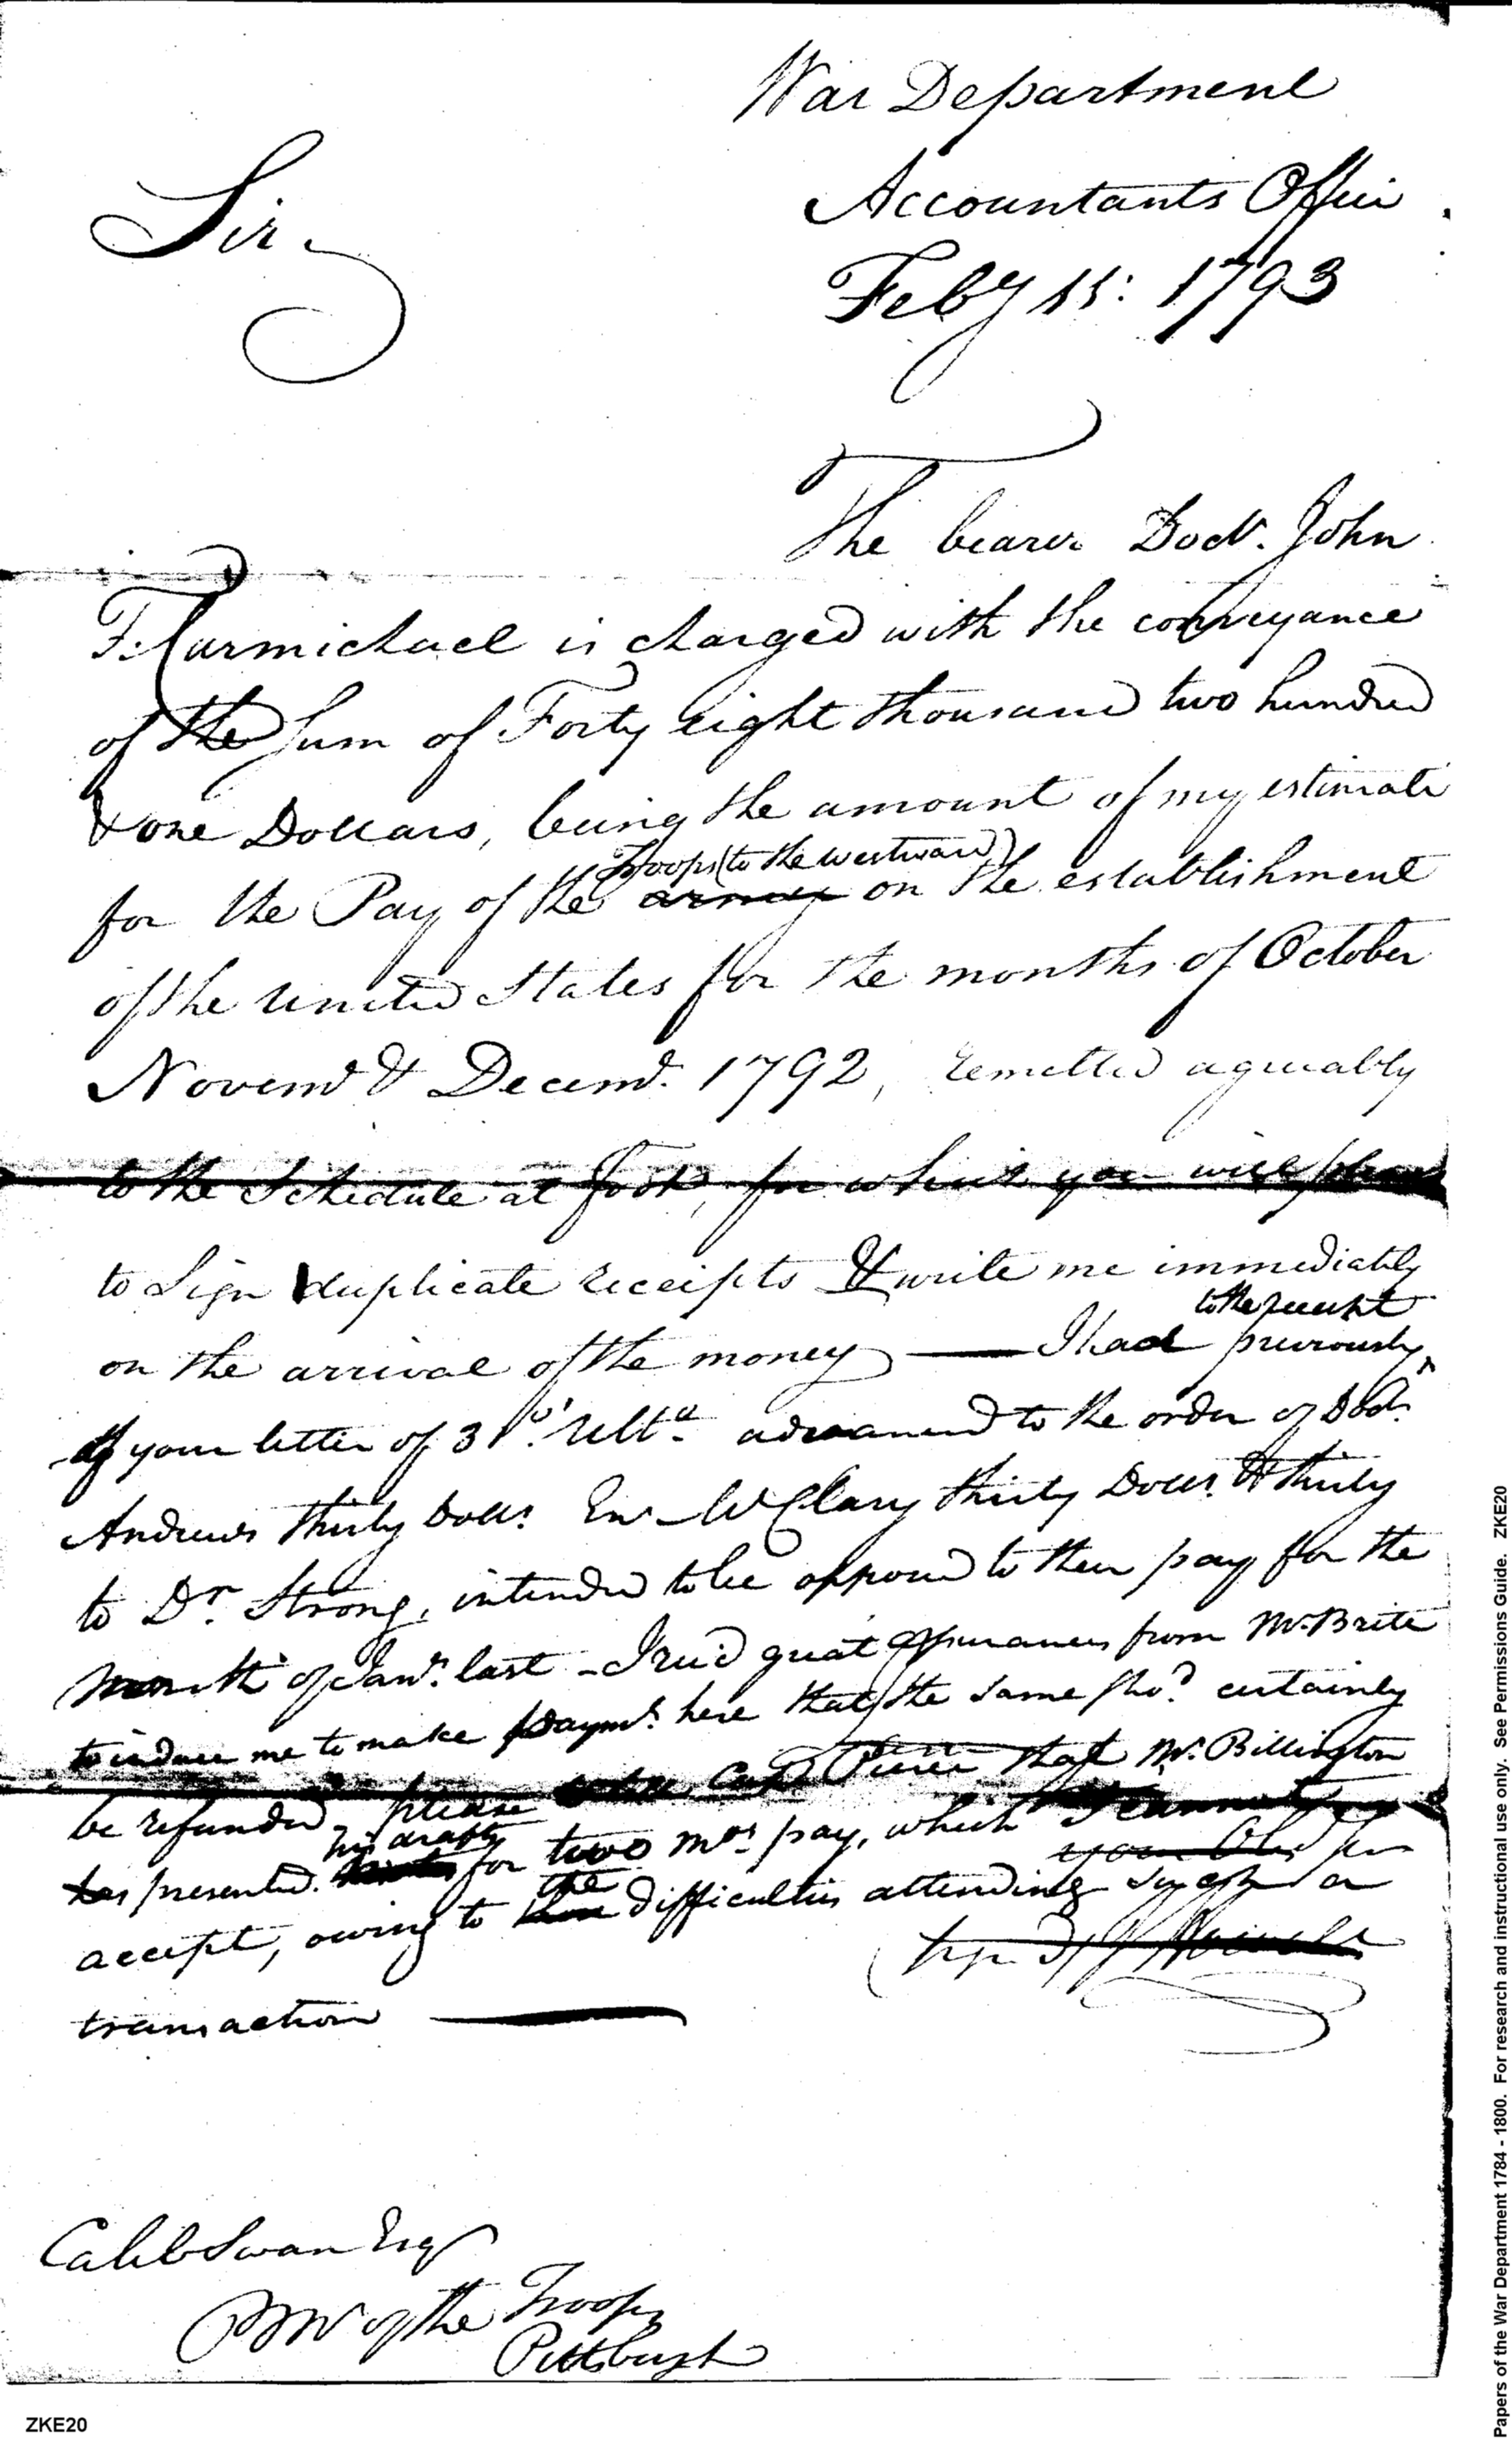 War Department
Accountants Office
Feby 15: 1793
Sir
The bearer Doctr. John
F. Carmichael is charged with the conveyance
of the Sum of Forty eight thousand two hundred
& one Dollars, being the amount of my estimate
Troops (to the westward)
for the Pay of the army on the establishment
of the united States for the months of October
Novemr & Decemr. 1792, remitted agreeably
to the Schedule at foot, for which you will please
to Sign duplicate receipts & write me immediately
to the receipt
on the arrival of the money — I had previously
of your letter of 31st. Ulto. advanced to the order of Doctr
Andrews thirty Dolls. Ens McClary thirty Dolls. & thirty
to Dr. Strong, intended to be appd to their pay for the
month of Jany. last - I recd great assurances from Mr. Brite
to induce me to make paymt. here that the same shod. certainly
be refunded, please Capt Pierce that Mr. Billington
his drafts
has presented for two mos. pay, which I cannot
your Obt Ser
the
accept, owing to difficulties attending such a
J Howell
transaction
Caleb Swan Esqr
PM of the Troops
Pittsburgh
ZKE20
Papers of the War Department 1784 - 1800. For research and instructional use only. See Permissions Guide. ZKE20